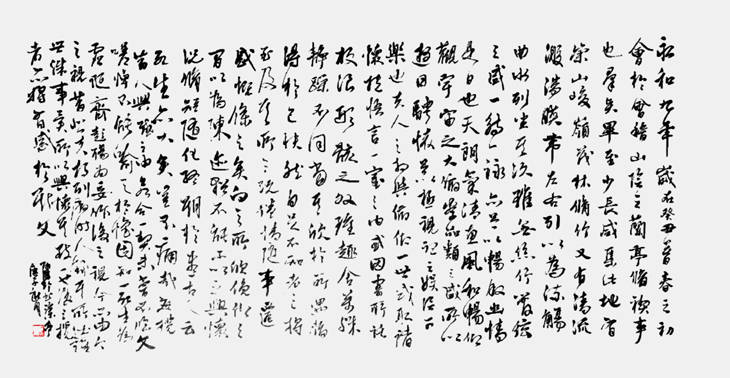 永和九年歲在癸丑暮春之初
會於會稽山陰之蘭亭脩禊事
也羣賢畢至少長咸集此地有
崇山峻嶺茂林脩竹又有清流
激湍暎帶左右引以為流觴
曲水列坐其次雖無絲竹管弦
之盛一觴一詠亦足以暢敘幽情
是日也天朗氣清惠風和暢仰
觀宇宙之大俯察品類之盛所以
遊目騁懷足以極視聽之娛信可
樂也夫人之相與俯仰一世或取諸
懷抱悟言一室之內或因寄所託
放浪形骸之外雖趣舍萬殊
靜躁不同當其欣於所遇暫
得於己快然自足不知老之將
至及其所之既倦情隨事遷
感慨係之矣向之所欣俛仰之
間以為陳迹猶不能不以之興懷
況脩短隨化終期於盡古人云
死生亦大矣豈不痛哉每攬
昔人興感之由若合一契未嘗不臨文
嗟悼不能喻之於懷固知一死生為
虛誕齊彭殤為妄作後之視今亦由今
之視昔悲夫故列敘時人錄其所述雖
世殊事異所以興懷其致一也後之攬
者亦將有感於斯文